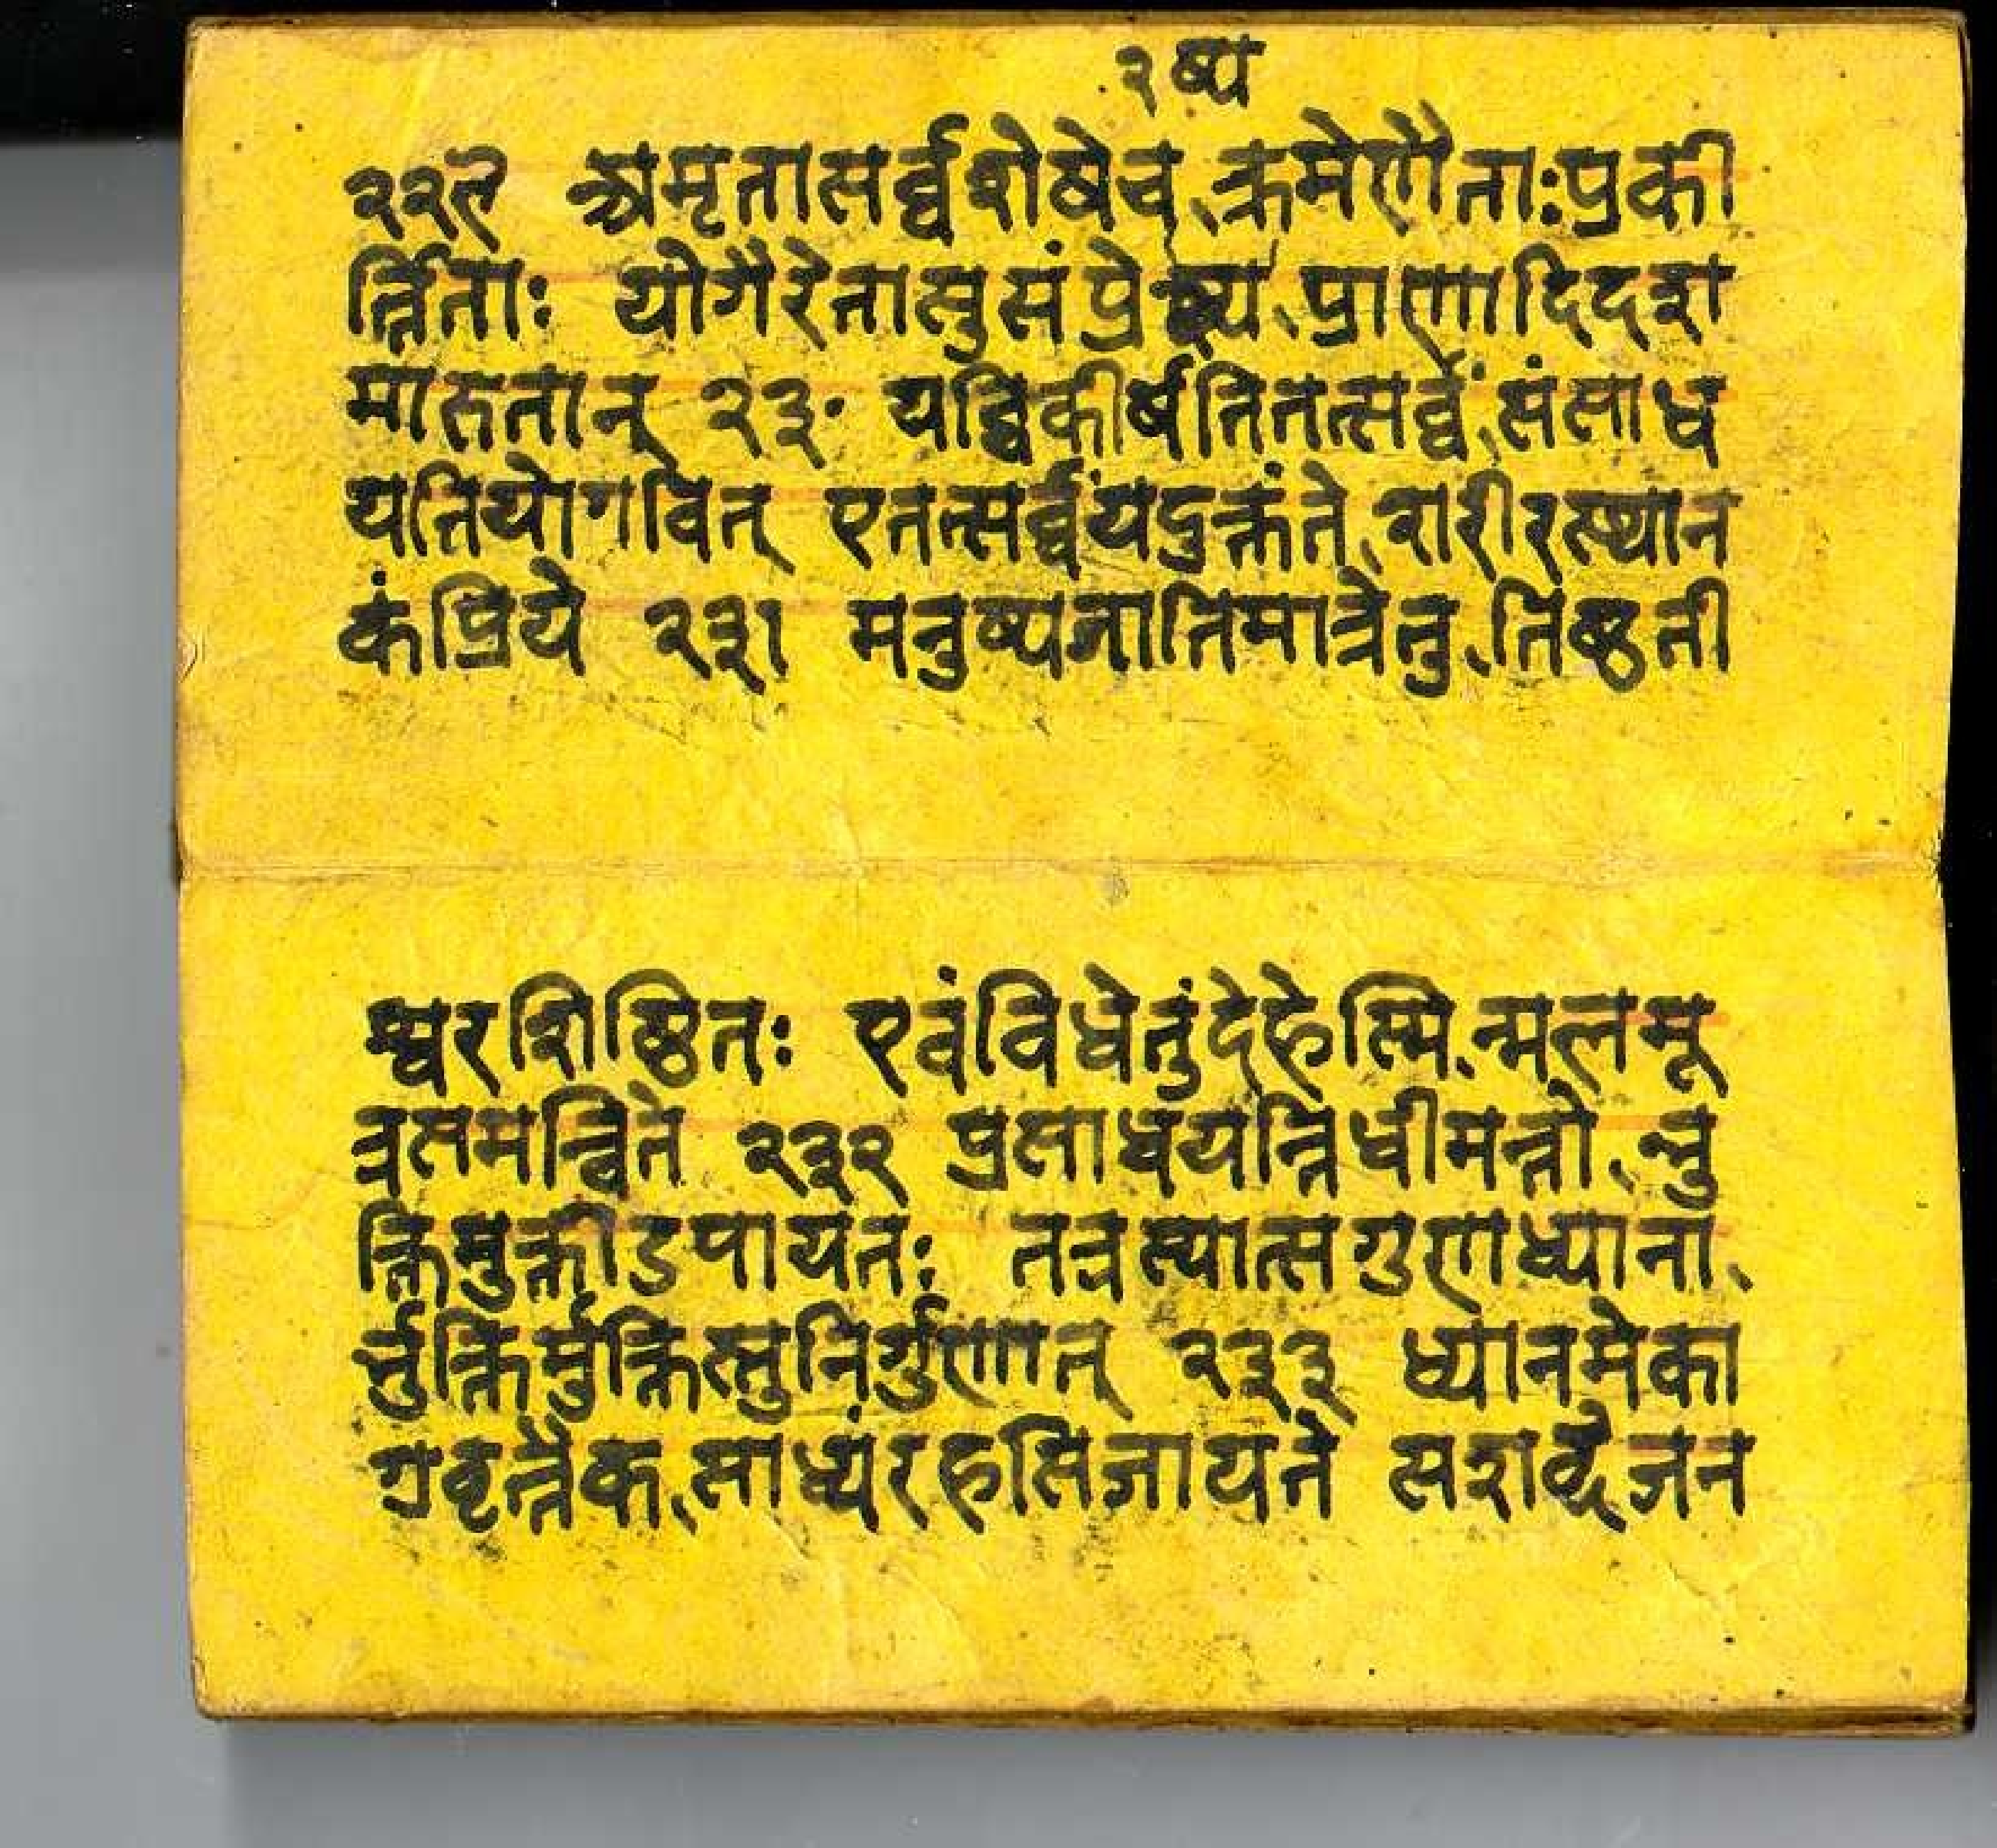 २ ष्य
२२९ अमृतासर्व्वशेषेच क्रमेणैताःप्रकी
र्त्तिताः योगैरेतासुसंप्रेक्ष्य प्राणादिदश
मारुतान् २३० यच्चिकीर्षतितत्सर्व्वं संसाध
यतियोगवित् एतत्सर्व्वंयदुक्तंते शरीरस्थान
कंप्रिये २३१ मनुष्यजातिमात्रेतु तिष्ठती
श्वरशिष्ठितः एवंविधेतुंदेहेस्मि न्मलमू
त्रसमन्विते २३२ प्रसाधयन्तिधीमन्तो न्तु
क्तिमुक्तीउपायतः तत्रस्यात्सगुणाध्याना
र्त्तुक्तिर्मुक्तिस्तुनिर्गुणात् २३३ ध्यानमेका
ग्रवृत्तैक साध्यंरहसिजायते सशब्दैजन